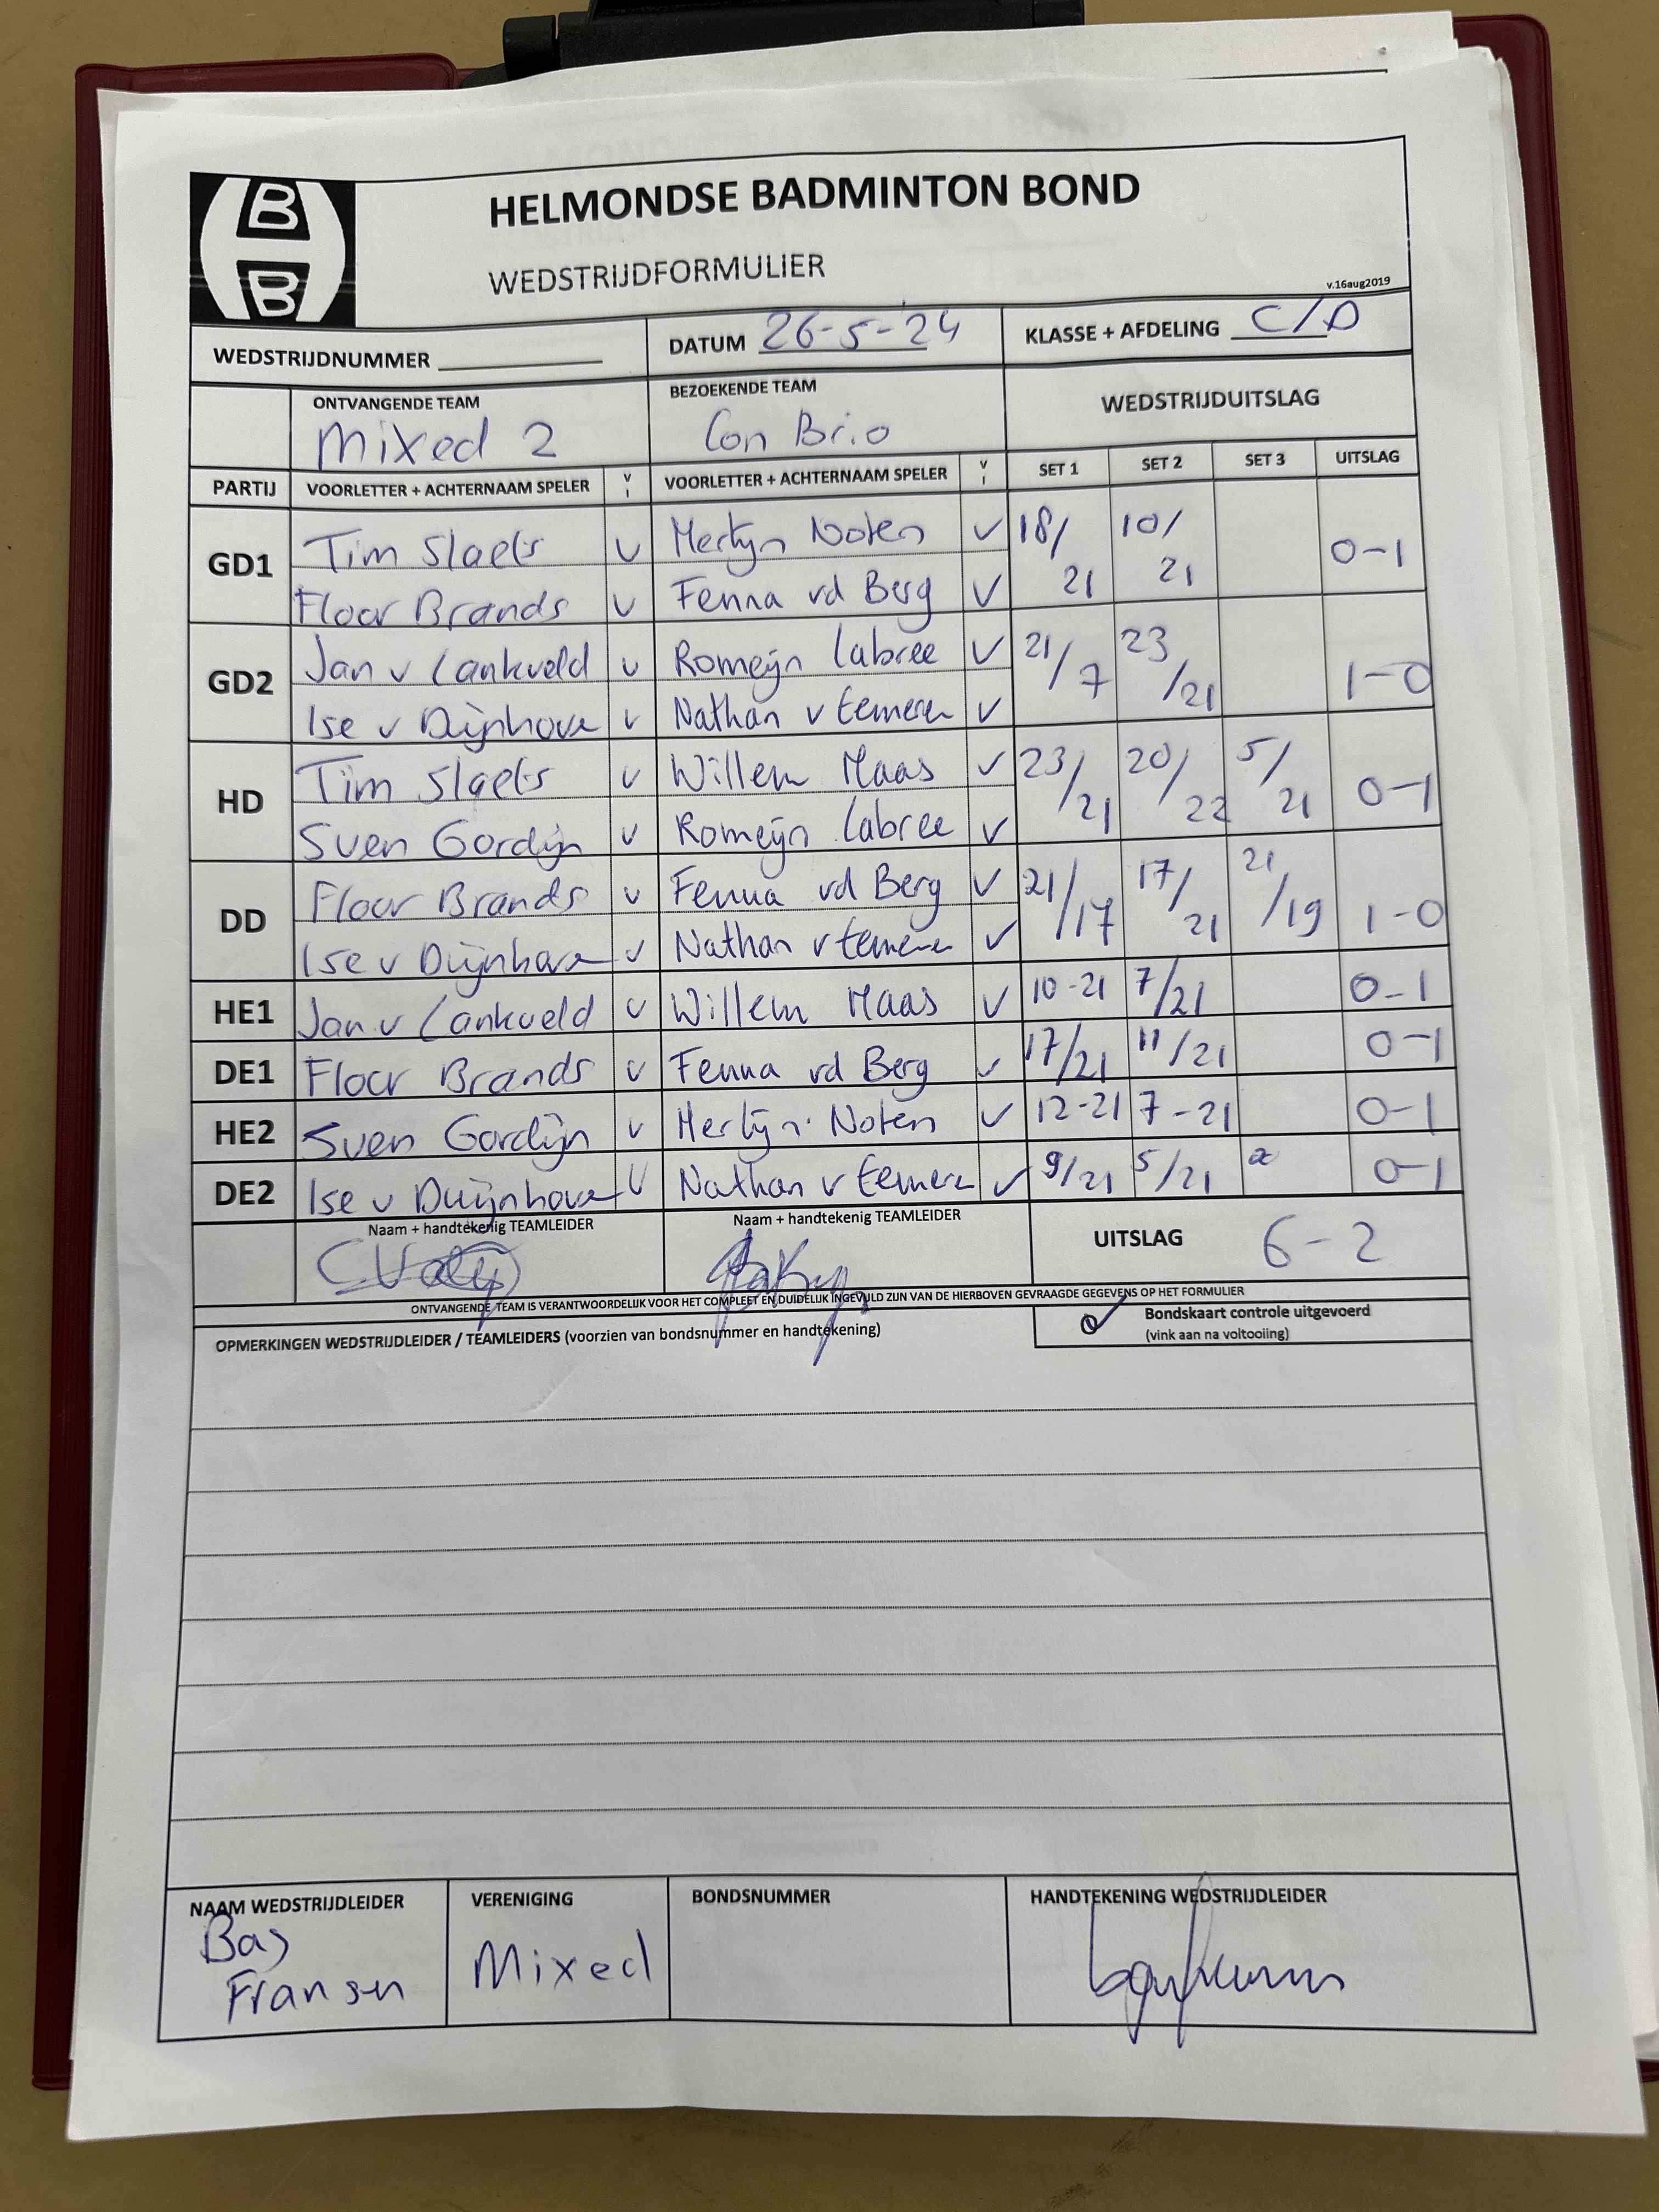 B
B
HELMONDSE BADMINTON BOND
WEDSTRIJDFORMULIER
v.16aug2019
WEDSTRIJDNUMMER DATUM 26-5-'24 KLASSE + AFDELING C/D
ONTVANGENDE TEAM BEZOEKENDE TEAM WEDSTRIJDUITSLAG
Mixed 2 Con Brio
PARTIJ VOORLETTER + ACHTERNAAM SPELER V I VOORLETTER + ACHTERNAAM SPELER V I SET 1 SET 2 SET 3 UITSLAG
GD1 Tim Slaets v Mertijn Noten v 18/21 10/21 0-1
Floor Brands v Fenna vd Berg v
GD2 Jan v Lankveld v Romeijn Labree v 21/7 23/21 1-0
Ise v Duijnhove v Nathan v Eemeren v
HD Tim Slaets v Willem Maas v 23/21 20/22 5/21 0-1
Sven Gordijn v Romeijn Labree v
DD Floor Brands v Fenna vd Berg v 21/17 17/21 21/19 1-0
Ise v Duijnhove v Nathan v Eemeren v
HE1 Jan v Lankveld v Willem Maas v 10-21 7/21 0-1
DE1 Floor Brands v Fenna vd Berg v 17/21 11/21 0-1
HE2 Sven Gordijn v Mertijn Noten v 12-21 7-21 0-1
DE2 Ise v Duijnhove v Nathan v Eemeren v 9/21 5/21 0-1
Naam + handtekenig TEAMLEIDER Naam + handtekenig TEAMLEIDER UITSLAG 6-2
ONTVANGENDE TEAM IS VERANTWOORDELIJK VOOR HET COMPLEET EN DUIDELIJK INGEVULD ZIJN VAN DE HIERBOVEN GEVRAAGDE GEGEVENS OP HET FORMULIER
OPMERKINGEN WEDSTRIJDLEIDER / TEAMLEIDERS (voorzien van bondsnummer en handtekening)
Bondskaart controle uitgevoerd
(vink aan na voltooiing)
NAAM WEDSTRIJDLEIDER VERENIGING BONDSNUMMER HANDTEKENING WEDSTRIJDLEIDER
Bas
Fransen Mixed